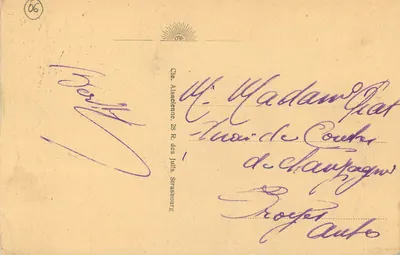 06
Berthe
Cie. Alsacienne, 26 R. des Juifs, Strasbourg
M. Madame Piat
Quai de Comtes
de Champagne
Troyes
Aube